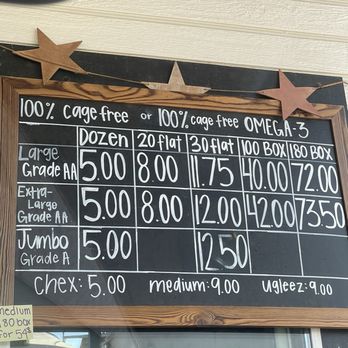 100% Cage free or 100% cage free OMEGA-3
Dozen 20 flat 30 flat 100 BOX 180 BOX
Large Grade AA 5.00 8.00 11.75 40.00 72.00
Extra-Large Grade AA 5.00 8.00 12.00 42.00 73.50
Jumbo Grade A 5.00 12.50
Chex: 5.00 medium: 9.00 ugleez: 9.00
medium
180 box
for 54